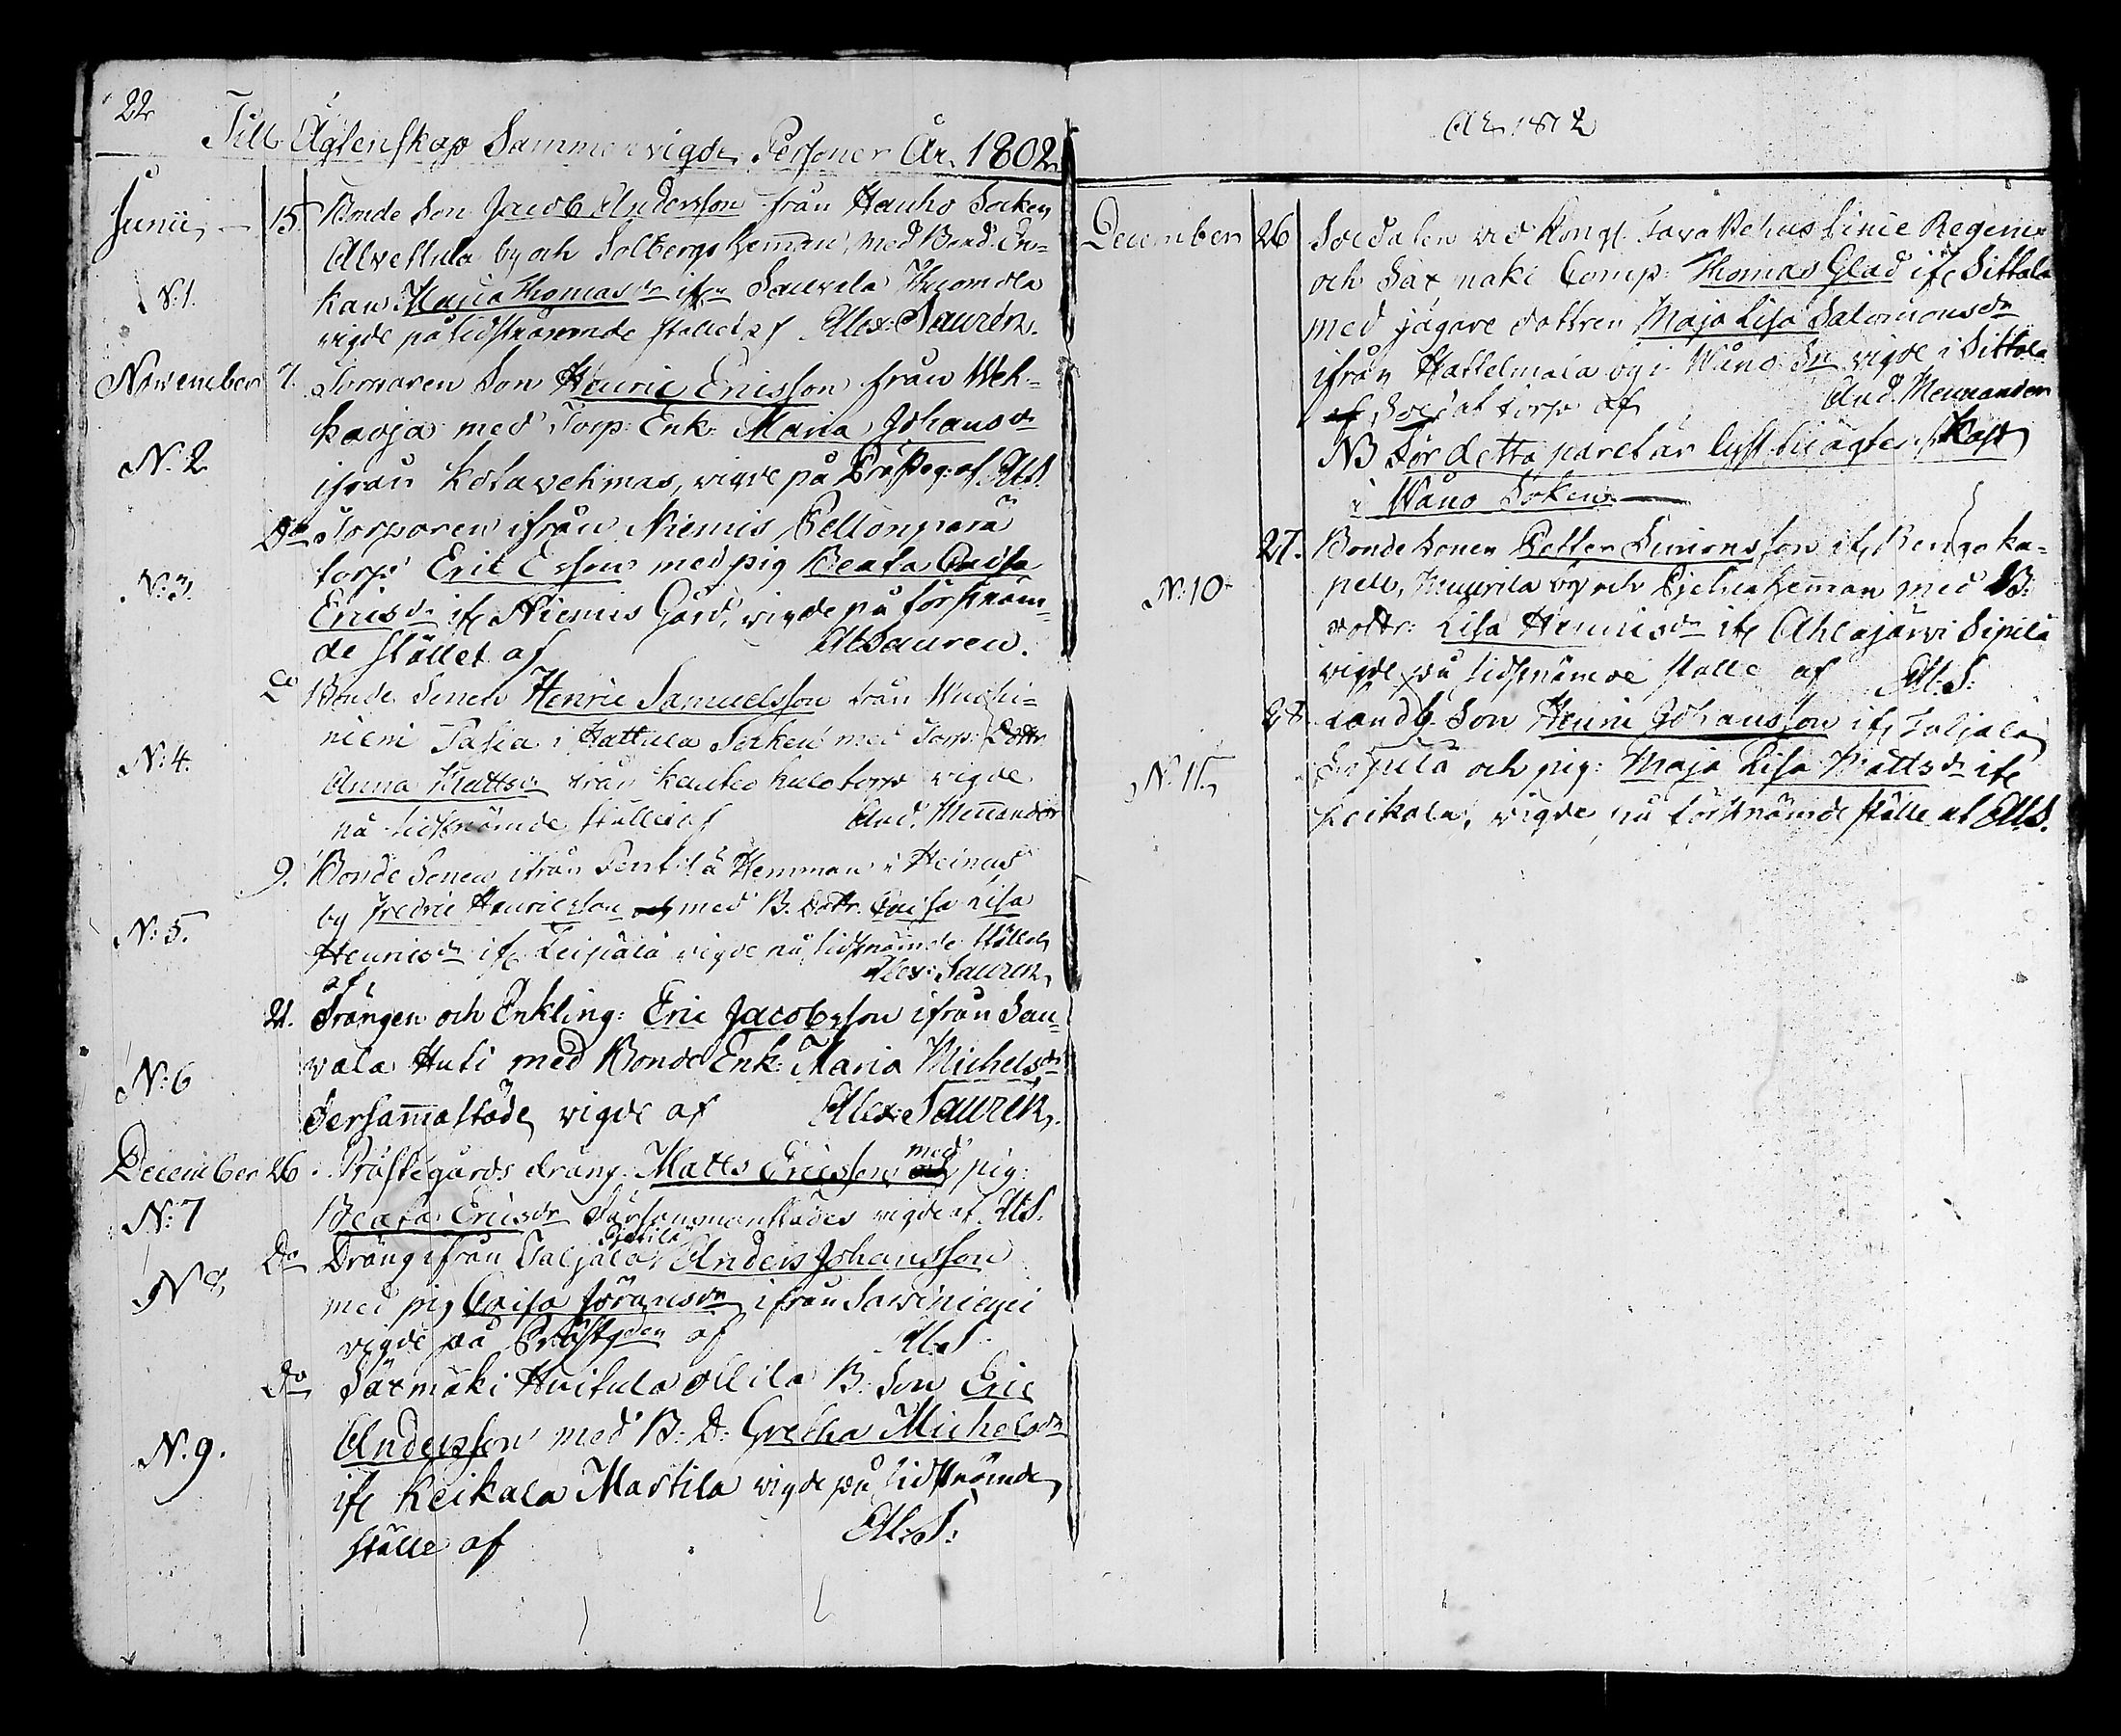 22
Till Ägtenskap Sammanvigde Personer År 1802
Junii, 15. Bonde Son Jacob Andersson från Hauho Socken
Alvettula by och Solbergs Hemman, med Bond. En-
N:1. kan Maria Thomasdr ifrn Sauvala Thuomola
vigde på sidstnämnde stället af Alex: Saurén.
November 7. Torparen Son Henric Ericsson från Weh-
karja med Torp: Enk: Maria Johansdr
N:2 ifrån Kotavehmas, vigde på Prästeg: af Al.S.
Do Torparen ifrån Niemis Peltonperä
N:3. torp Eric Ersson med pig Beata Caisa
Ericsdr ifr Niemis Gård, vigde på förstnäm-
de stället af Al. Sauren.
Do Bonde Sonen Henric Samuelsson från
niemi i Hattula Socken med Torp: Dottr
N:4. Anna Mattsdr från torp vigde
på sidstnämde stället af And. Mennander
9. Bonde Sonen ifrån Penttilä Hemman i Heinus
by Fredric Henricsson och med B. Dottr. Caisa Lisa
N:5. Henricsdr ifr Leiniälä vigde på sidstnämde stället
af Alex: Sauren,
21. Drängen och Enkling: Eric Jacobsson ifrån Sau-
vala Huti med Bonde Enk: Maria Michelsdr
N:6 dersammastäde, vigde af Alex: Saurén.
December 26. Prästegårds dräng Matts Ericsson och med pig:
N:7 Beata Ericsdr dersammanstädes vigde af Al.S.
Do Dräng ifrån Taljala Pietilä Anders Johansson
N 8, med pig Caisa Göransdr ifrån Saviniemi
vigde på Prästgden af Al.S
Do Säxmäki Huitula Ollila B: Son Eric
N.9. Andersson med B: D: Gretha Michelsdr
ifr Keikala Mastila vigde på sidstnämde
ställe af Al:S:
År 1802
December 26 Soldaten vid Kongl. Tavastehus Linie Regem
och Säxmäki Comp: Thomas Glad ifr Sittala
med jägare dottren Maja Lisa Salomonsdr
ifrån Hattelmala by i Wånå Sn vigde i Sittala
af Soldat torp af And. Mennander
NB För detta paret är lyst til ägtenskap
i Wånå Soken
27. Bonde Sonen Petter Simonsson ifr Rengo ka-
N:10. pell, Muurila by och Hemman med B:
dottr: Lisa Henricsdr ifr Ahlajärvi Sipilä
vigde på sidstnämde ställe af Al:S:
28. Landb. Son Henric Johansson ifr Taljala
N:11. och pig: Maja Lisa Mattsdr ifr
Keikala, vigde på förstnämde ställe af Al.S.